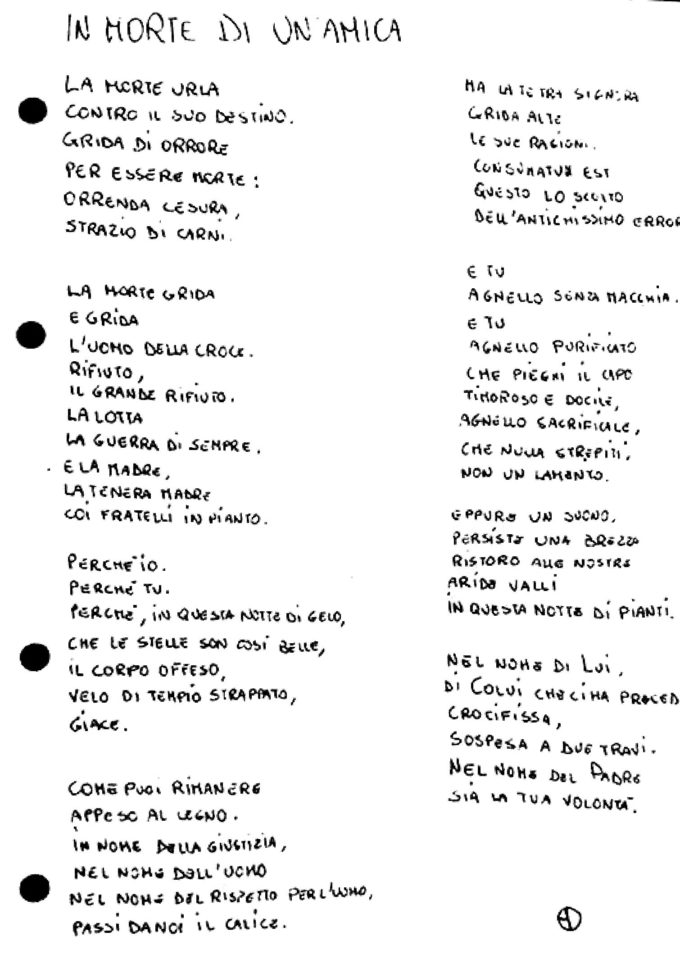 IN MORTE DI UN'AMICA
LA MORTE URLA
CONTRO IL SUO DESTINO.
GRIDA DI ORRORE
PER ESSERE MORTE:
ORRENDA CESURA,
STRAZIO DI CARNI.
LA MORTE GRIDA
E GRIDA
L'UOMO DELLA CROCE.
RIFIUTO,
IL GRANDE RIFIUTO.
LA LOTTA
LA GUERRA DI SEMPRE.
E LA MADRE,
LA TENERA MADRE
COI FRATELLI IN PIANTO.
PERCHÉ IO.
PERCHÉ TU.
PERCHÉ, IN QUESTA NOTTE DI GELO,
CHE LE STELLE SON COSÌ BELLE,
IL CORPO OFFESO,
VELO DI TEMPIO STRAPPATO,
GIACE.
COME PUOI RIMANERE
APPESO AL LEGNO.
IN NOME DELLA GIUSTIZIA,
NEL NOME DELL'UOMO
NEL NOME DEL RISPETTO PER L'UOMO,
PASSI DA NOI IL CALICE.
MA LA TETRA SIGNORA
GRIDA ALTE
LE SUE RAGIONI.
CONSUMATUM EST
QUESTO LO SCOTTO
DELL'ANTICHISSIMO ERROR
E TU
AGNELLO SENZA MACCHIA.
E TU
AGNELLO PURIFICATO
CHE PIEGHI IL CAPO
TIMOROSO E DOCILE,
AGNELLO SACRIFICALE,
CHE NULLA STREPITI,
NON UN LAMENTO.
EPPURE UN SUONO,
PERSISTE UNA BREZZA
RISTORO ALLE NOSTRE
ARIDE VALLI
IN QUESTA NOTTE DI PIANTI.
NEL NOME DI LUI,
DI COLUI CHE CI HA PRECED
CROCIFISSA,
SOSPESA A DUE TRAVI.
NEL NOME DEL PADRE
SIA LA TUA VOLONTÀ.